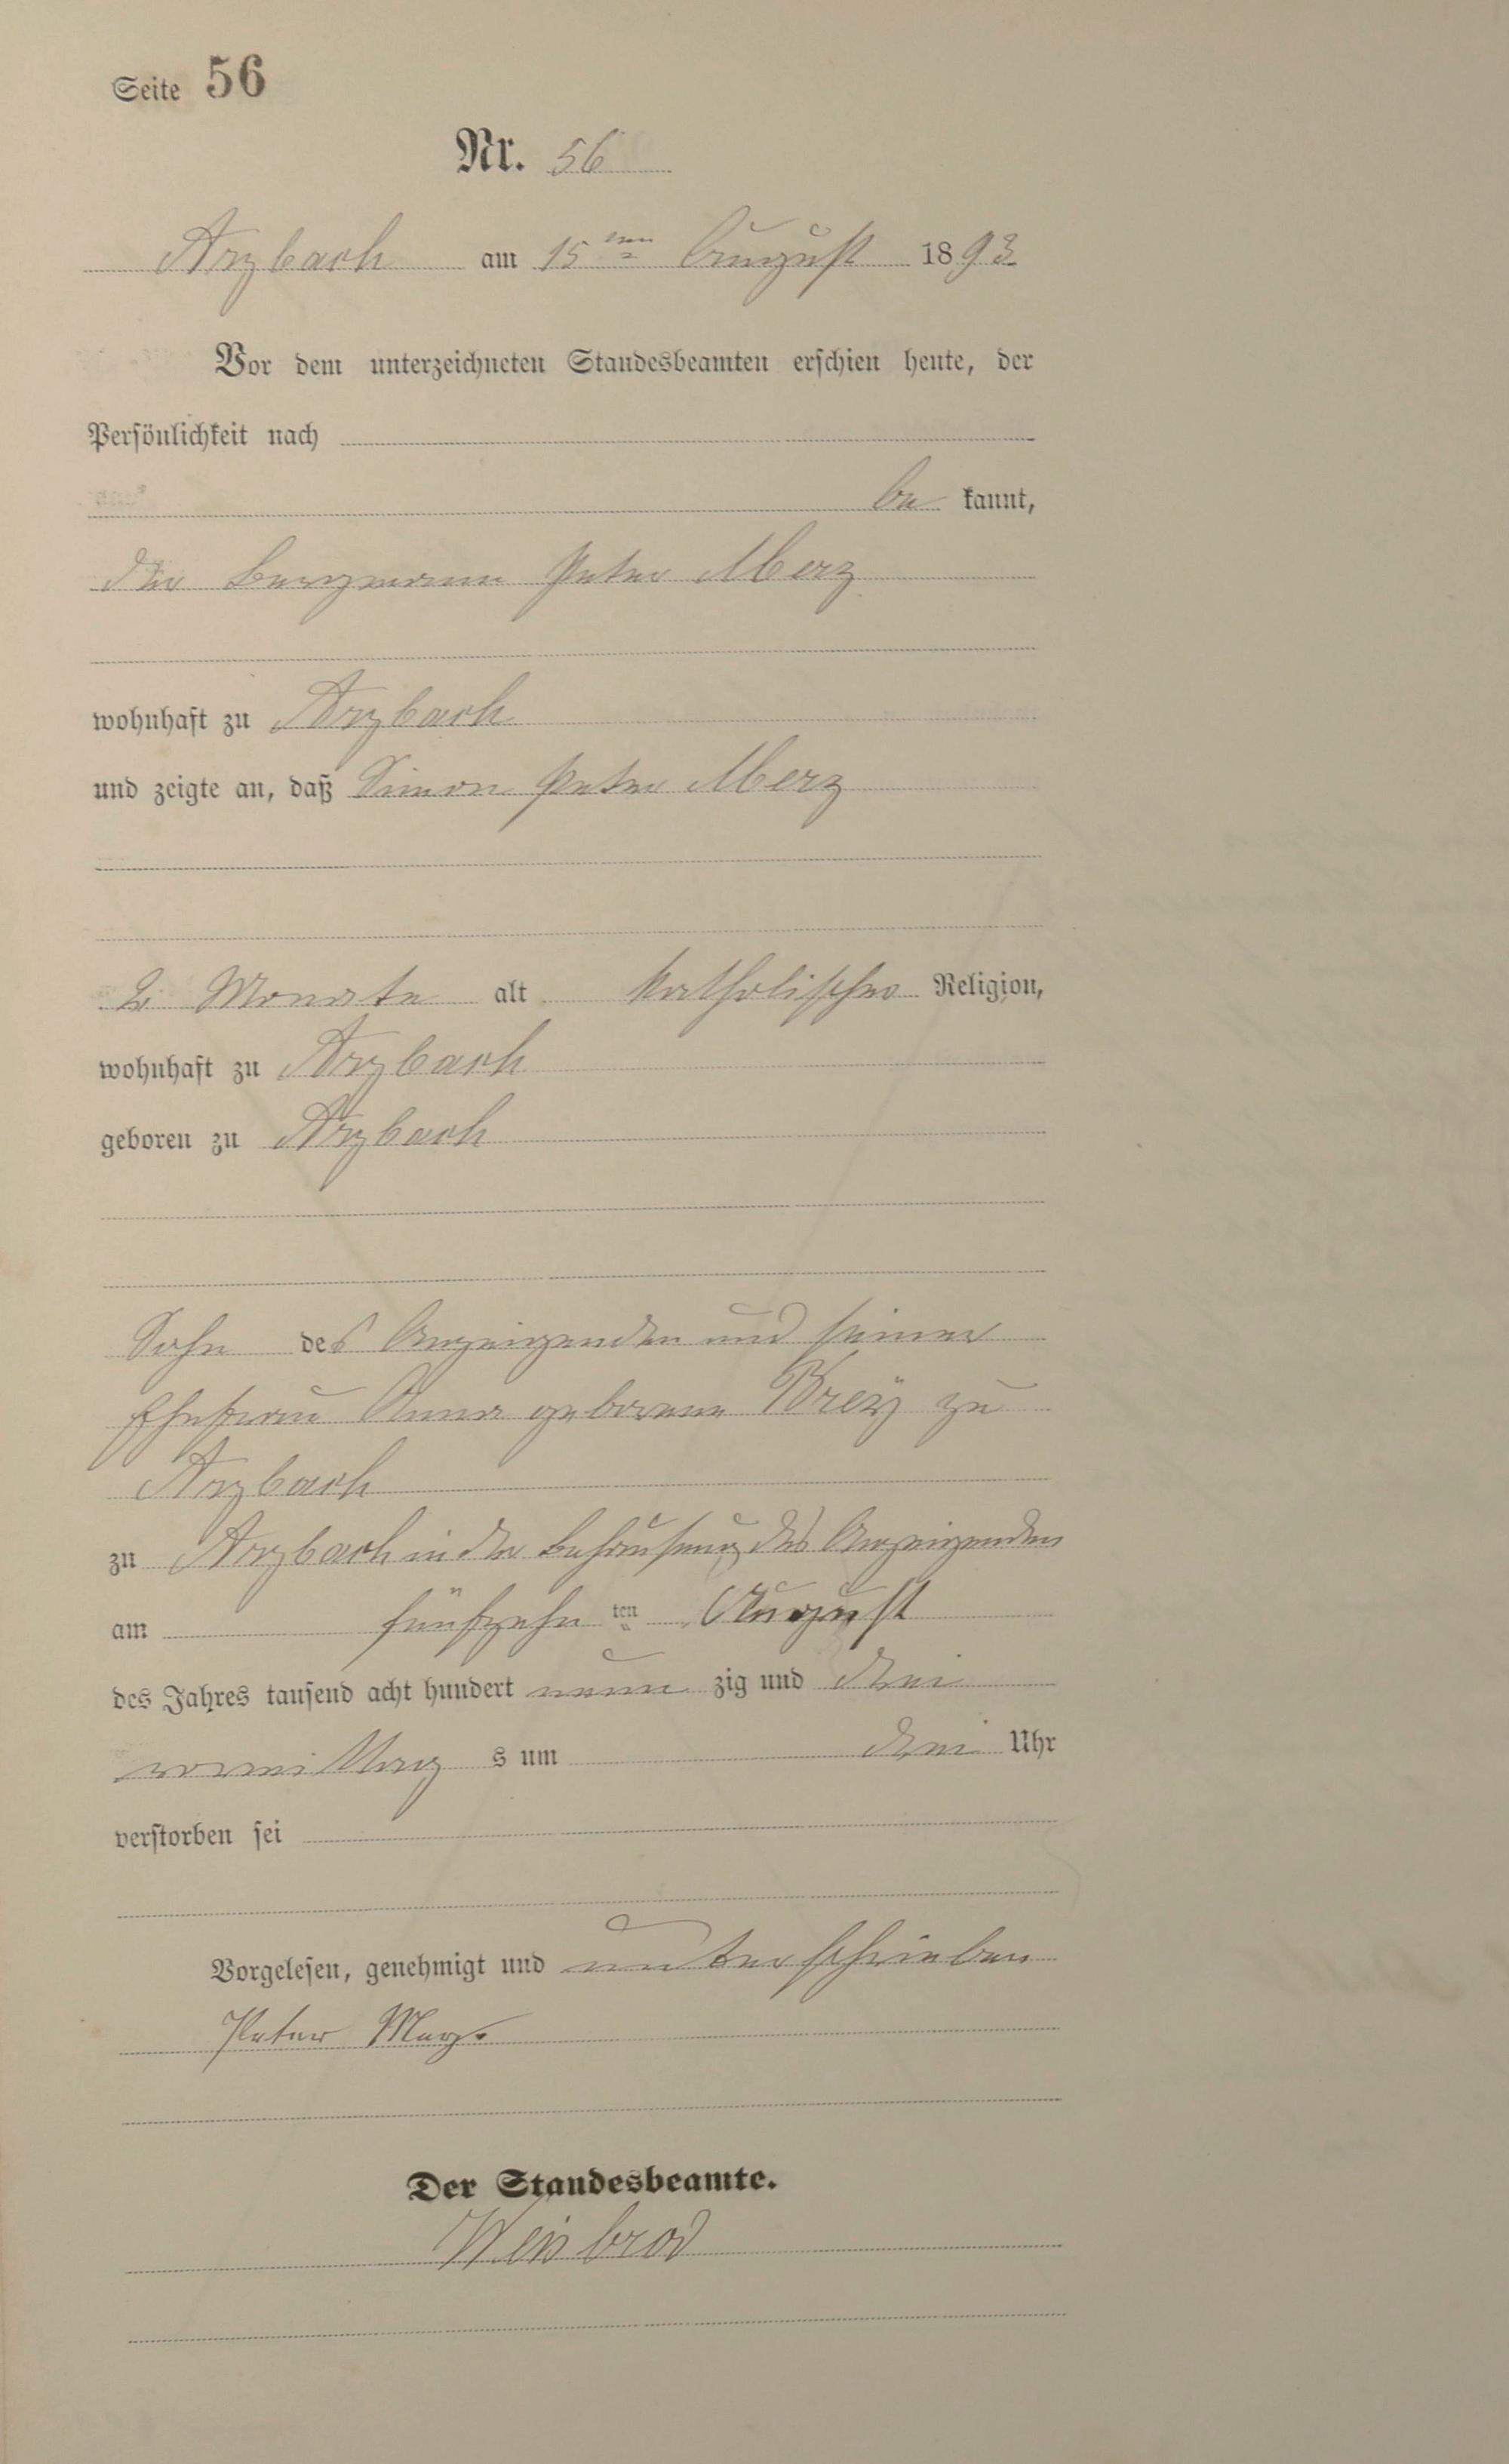 Seite 56
Nr. 56
Arzbach am 15ten August 1893
Vor dem unterzeichneten Standesbeamten erschien heute, der
Persönlichkeit nach
be kannt,
der Bergmann Peter Merz
wohnhaft zu Arzbach
und zeigte an, daß Simon Peter Merz
2 Monate alt katholischer Religion,
wohnhaft zu Arzbach
geboren zu Arzbach
Sohn des Anzeigenden und seiner
Ehefrau Anna geborene Breÿ zu
Arzbach
zu Arzbach in der Behausung des Anzeigenden
am fünfzehn ten August
des Jahres tausend acht hundert neun zig und drei
vormittag s um drei Uhr
verstorben sei
Vorgelesen, genehmigt und unterschrieben
Peter Merz.
Der Standesbeamte.
Weisbrod